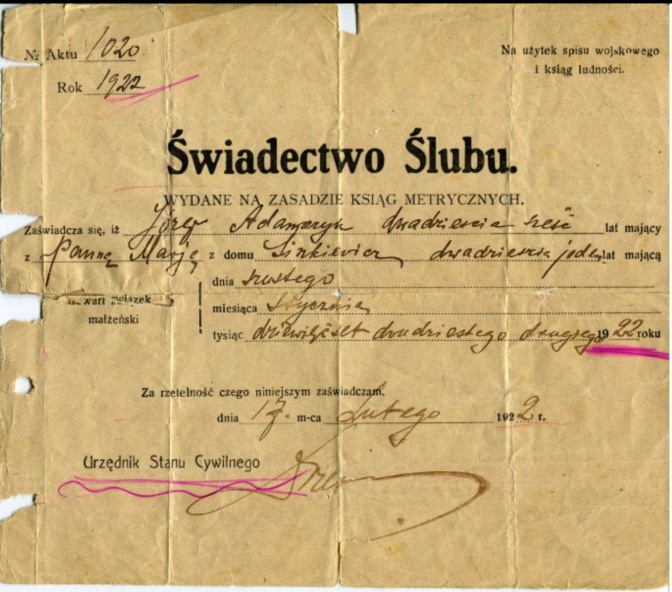 № Aktu 1020
Rok 1922
Na użytek spisu wojskowego
i ksiąg ludności.
Świadectwo Ślubu.
WYDANE NA ZASADZIE KSIĄG METRYCZNYCH.
Zaświadcza się, iż Józef Adamczyk dwadzieścia sześć lat mający
z Panną Marją z domu Sinkiewicz dwadzieścia jeden lat mającą
dnia szóstego
zawarł związek
małżeński
miesiąca stycznia
tysiąc dziewięćset dwudziestego drugiego 1922 roku
Za rzetelność czego niniejszym zaświadczam.
dnia 17. m-ca Lutego 1922 r.
Urzędnik Stanu Cywilnego